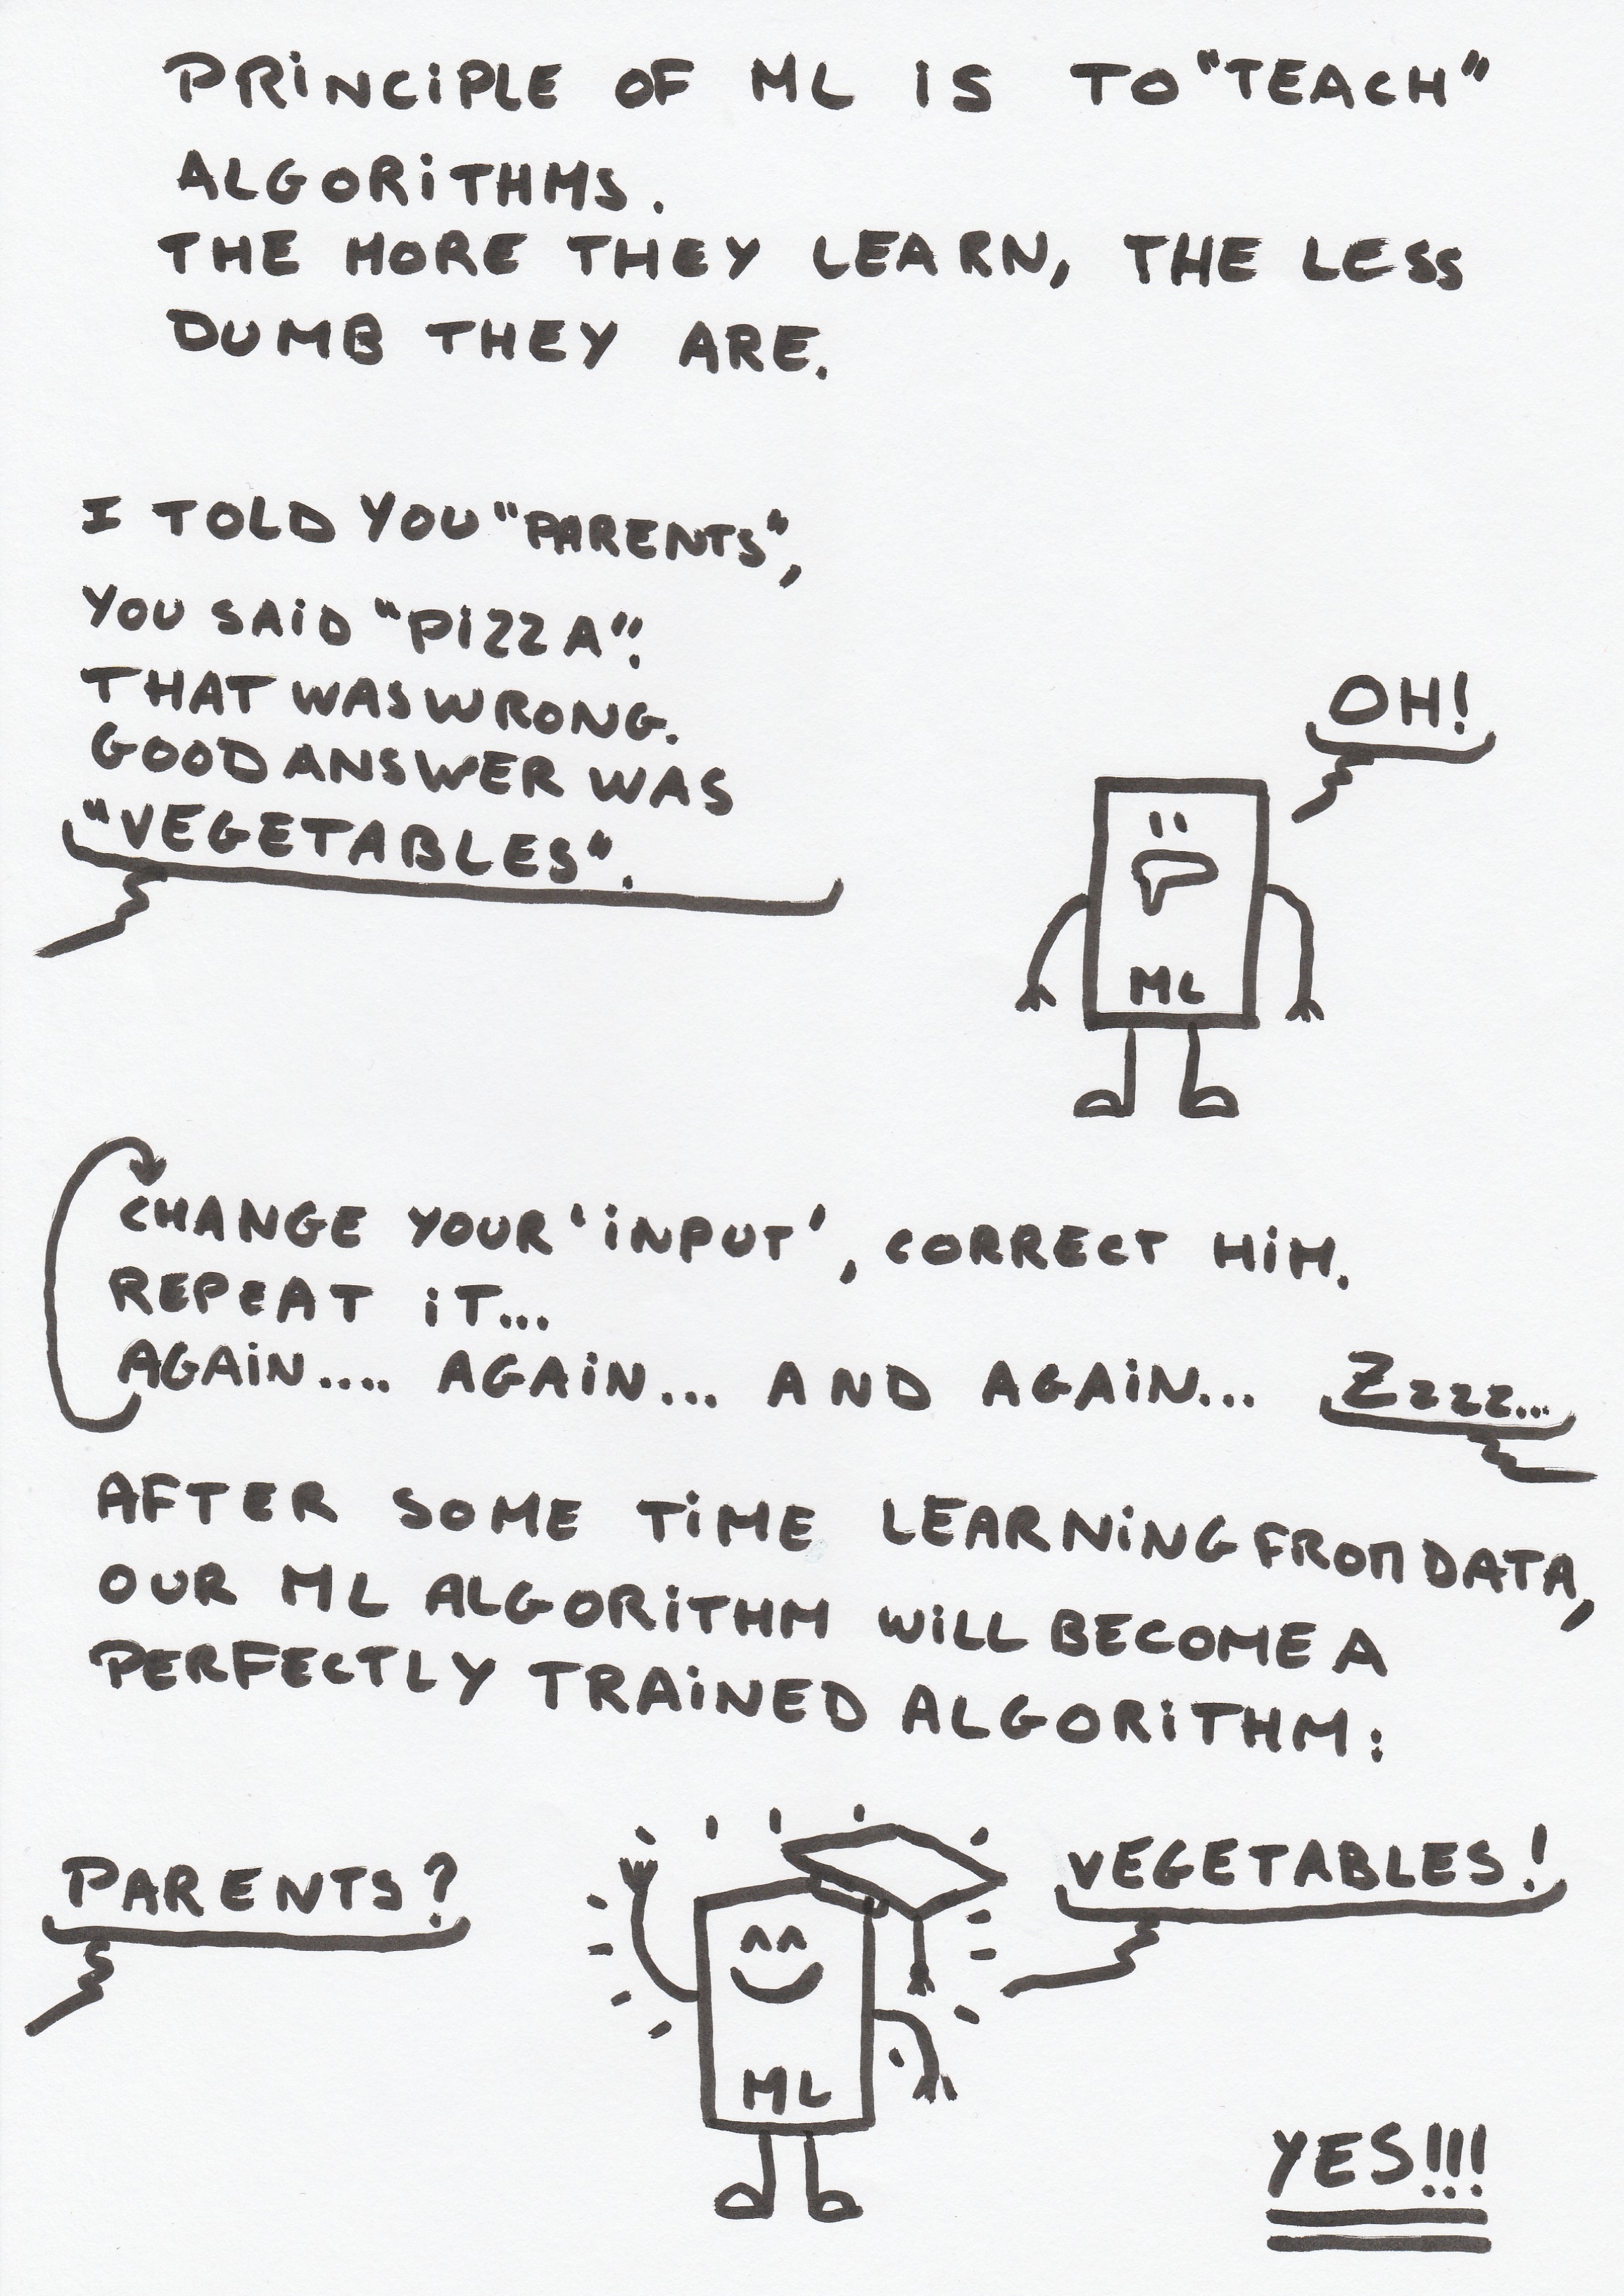 PRINCIPLE OF ML IS TO "TEACH"
ALGORITHMS.
THE MORE THEY LEARN, THE LESS
DUMB THEY ARE.
I TOLD YOU "PARENTS",
YOU SAID "PIZZA".
THAT WAS WRONG.
GOOD ANSWER WAS
"VEGETABLES".
OH!
ML
CHANGE YOUR 'INPUT', CORRECT HIM.
REPEAT IT...
AGAIN.... AGAIN... AND AGAIN...
Zzzzz...
AFTER SOME TIME LEARNING FROM DATA,
OUR ML ALGORITHM WILL BECOME A
PERFECTLY TRAINED ALGORITHM:
PARENTS?
VEGETABLES!
ML
YES!!!